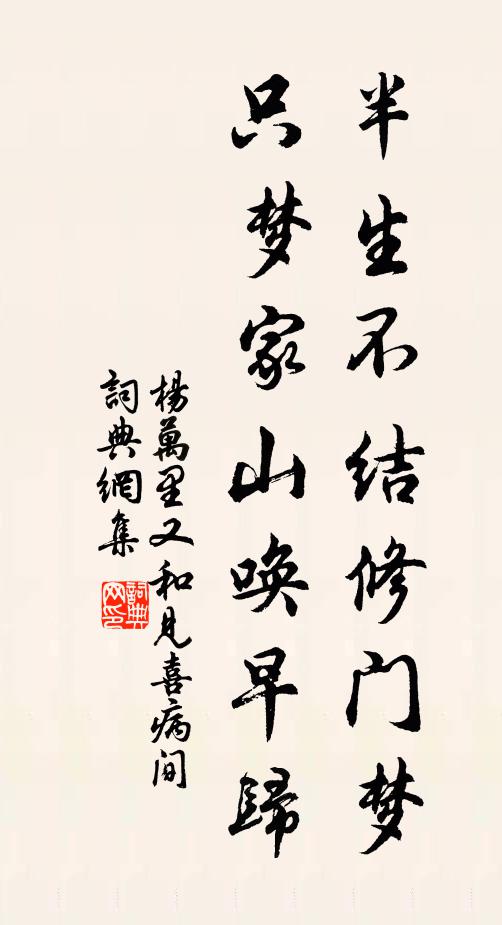 半生不结修门梦
只梦家山唤早歸
楊萬里又和見喜病间
詞典網集
詞典网印